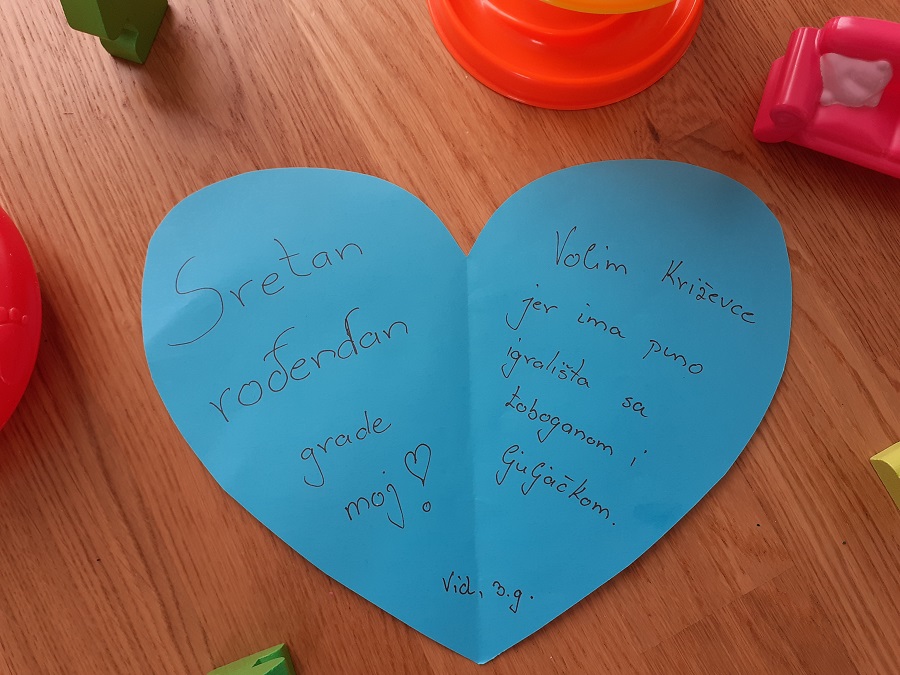 Sretan
rođendan
grade
moj!
Volim Križevce
jer ima puno
igrališta sa
toboganom i
ljuljačkom.
Vid, 3.g.